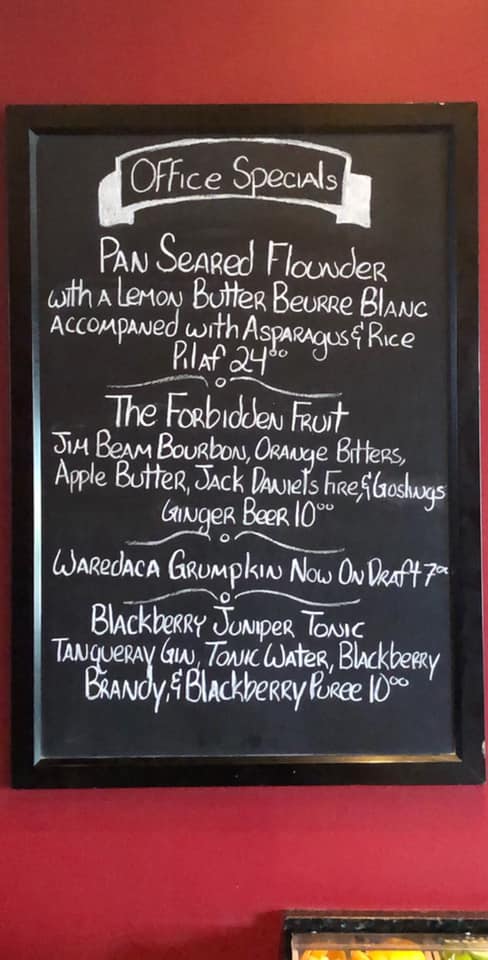 Office Specials
Pan Seared Flounder
with a Lemon Butter Beurre Blanc
Accompanied with Asparagus & Rice
Pilaf 24⁰⁰
The Forbidden Fruit
Jim Beam Bourbon, Orange Bitters,
Apple Butter, Jack Daniels Fire, & Goslings
Ginger Beer 10⁰⁰
Waredaca Grumpkin Now On Draft 7⁰⁰
Blackberry Juniper Tonic
Tanqueray Gin, Tonic Water, Blackberry
Brandy, & Blackberry Puree 10⁰⁰